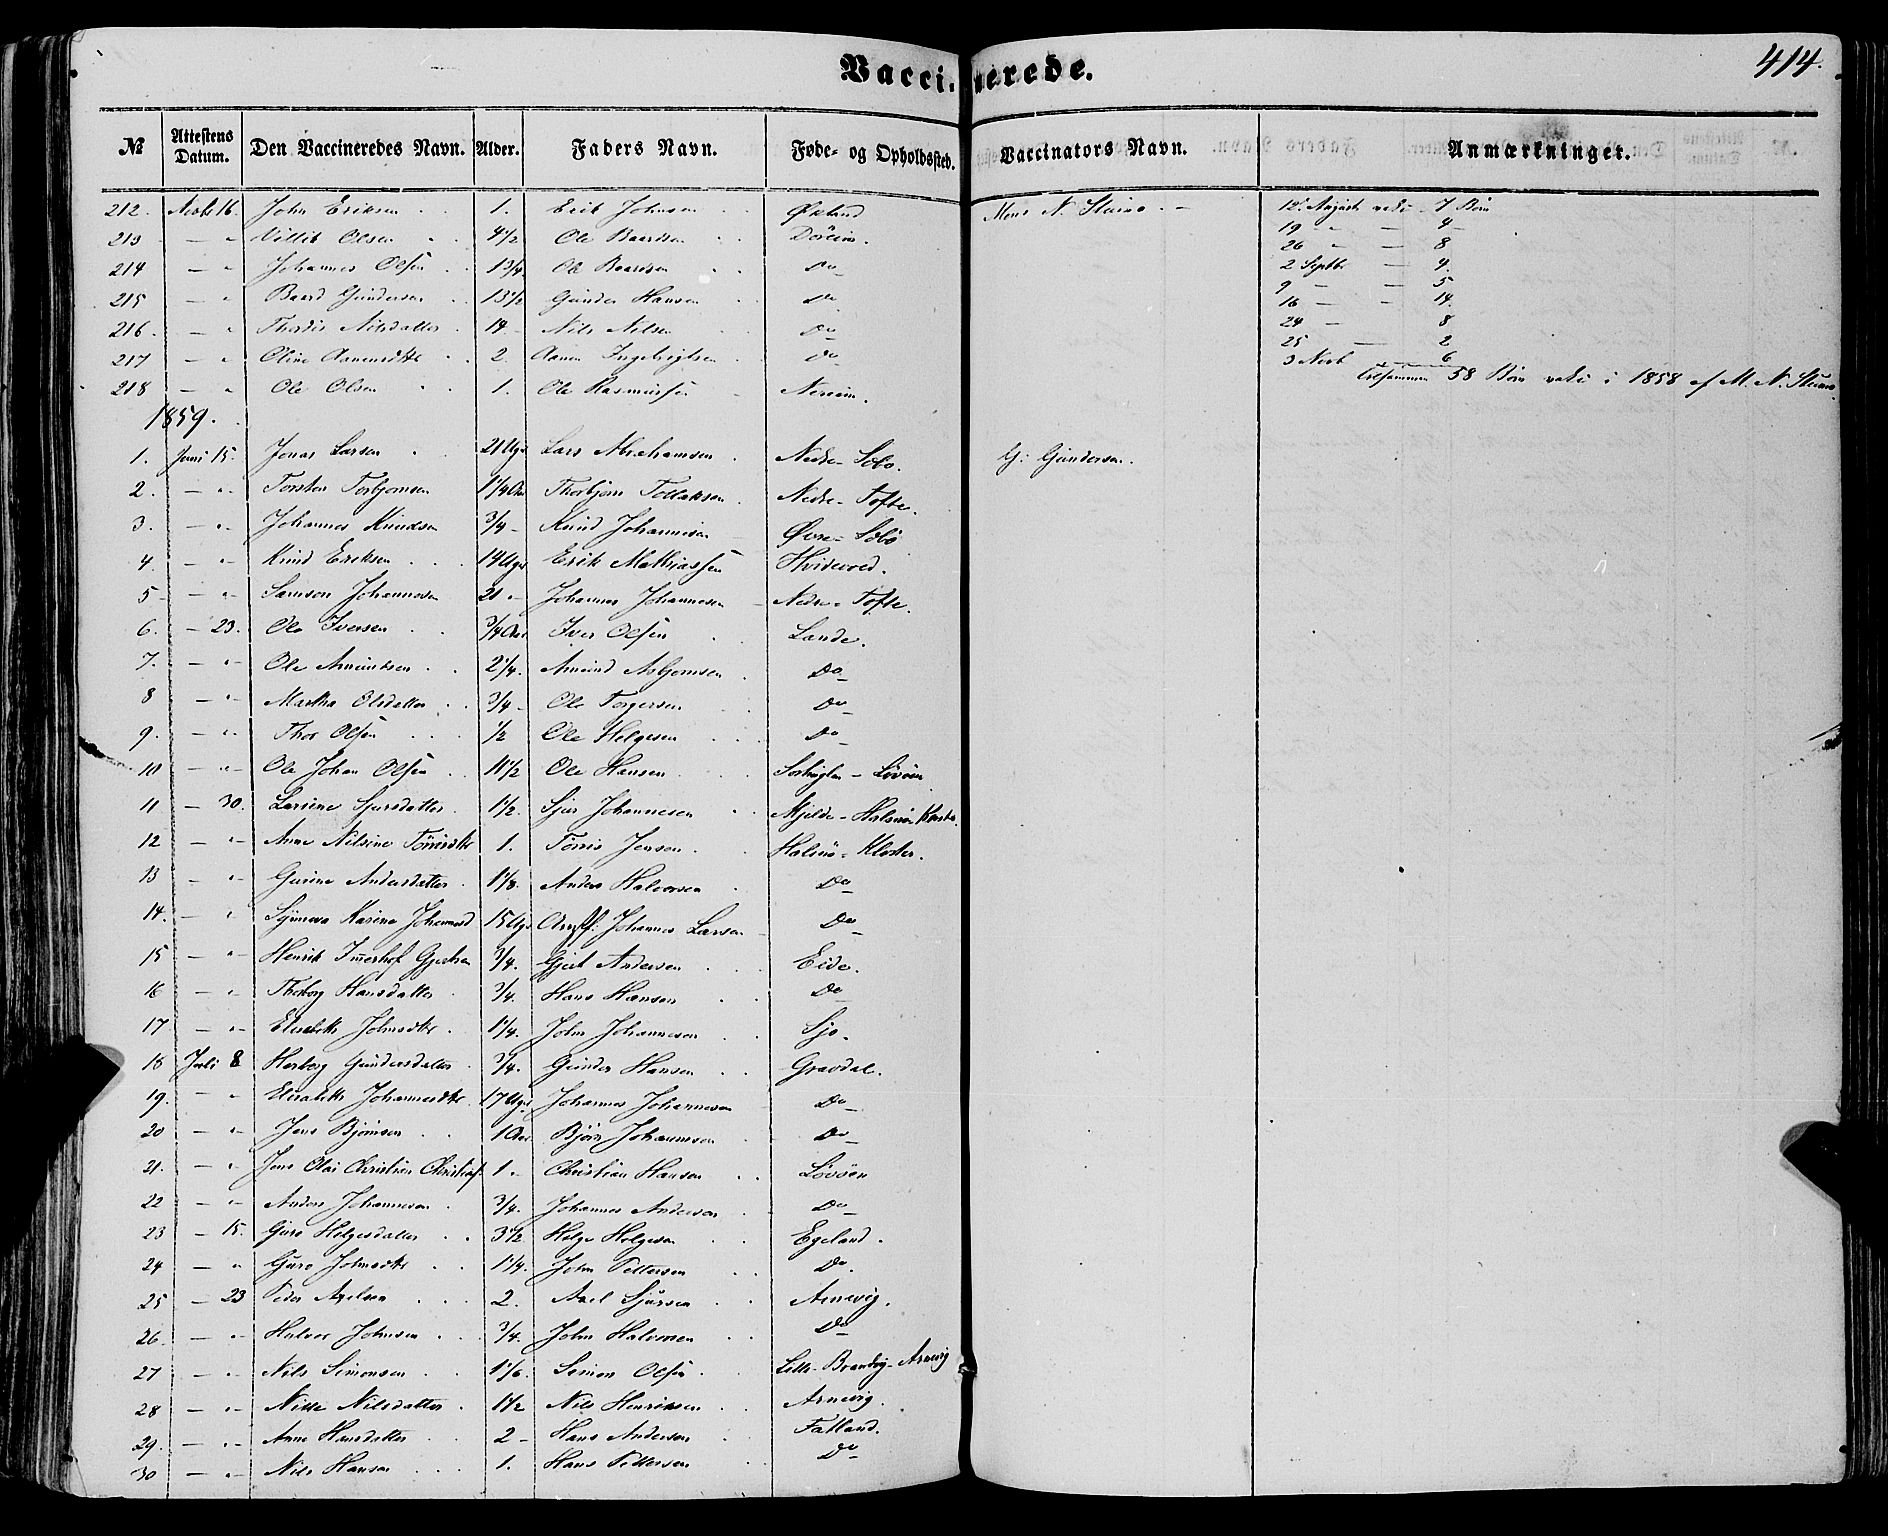 Vaccinerede.
414.
№ Attestens Datum. Den Vaccineredes Navn. Alder. Faders Navn. Føde- og Opholdssted. Vaccinators Navn. Anmærkninger.
212. 16. John Eriksen 1. Erik Johnsen Økland Mons N. 12 August 7 Børn
213 — " Olsen 4 1/2 Ole Baardsen 19 " — 4
214 — " Johannes Olsen 1 3/4 Ole Baardsen Do 26 " — 8
215 — " Baard Gundersen 13 1/2 Gunder Hansen Do 2 Septbr — 4
9 — 5
216. — " Thordis Nilsdatter 14 Nils Nilsen Do 16 — — 14
24 — 8
217 — " Oline 2. Ingebrigtsen Do 25 — 2
3 Novb 6
218 — " Ole Olsen 1. Ole Rasmussen 58 Børn i 1858 af M. N.
1859.
1. Juni 15. Jonas Larsen 21 Ugr Lars Abrahamsen Nedre- Søbø. G. Gundersen.
2. — " Torsten Torbjornsen 1 1/4 Aar Thorbjørn Tollaksen Nedre- Tofte.
3. — " Johannes Knudsen 3/4 — Knud Johannesen Øvre- Søbø
4 — " Knud Eriksen 14 Ugr Erik Mathiassen
5 — " Samson Johannesen 21 " Johannes Johannesen Nedre- Tofte.
6. — 23. Ole Iversen 3/4 Aar Iver Olsen Lande.
7. — " Ole Amundsen 2 1/4. Amund Asbjornsen Do
8 — " Martha Olsdatter 3/4 — Ole Torgersen Do
9. — " Thor Olsen 1/2 Ole Helgesen Do
10 — " Ole Johan Olsen 11 1/2 Ole Hansen
11 — 30. Larsine Sjursdatter 1 1/2. Sjur Johannesen Mjelde- Halsnø Kloster.
12 — " Anne Nilsine 1. Jensen Halsnø- Kloster.
13 — " Gurine Andersdatter 1 1/8. Anders Halvorsen Do
14. — " Karine 15 Ugr Johannes Larsen Do
15 — " Henrik 3/4. Gjert Andersen Eide.
16 — " Hansdatter 3/4. Hans Hansen Do
17 — " Elisabeth 1 1/4. John Johannesen Sjo.
18 Juli 8 Herborg Gundersdatter 3/4. Gunder Hansen Gravdal.
19. — " Elisabeth 17 Ugr Johannes Johannesen Do
20 — " Jens Bjørnsen 1 Aar Bjørn Johannesen Do
21. — " Jens Olai Christian 1 " Christian Hansen
22 — " Anders Johannesen 3/4. Johannes Andersen Do
23 — 15. Guro Helgesdatter 3 1/2 Helge Helgesen Egeland.
24 — " Guro 1 1/4. John Pettersen Do.
25 — 23 Peder Axelsen 2. Axel Sjursen Arnevig.
26 — " Halvor Johnsen 3/4. John Halvorsen Do
27 — " Nils Simonsen 1 1/6. Simon Olsen Arnevig
28 — " Nilsdatter 1 1/2 Nils Henriksen Arnevig.
29. — " Anne Hansdatter 2 — Hans Andersen Fatland.
30 — " Nils Hansen 1. Hans Pettersen Do